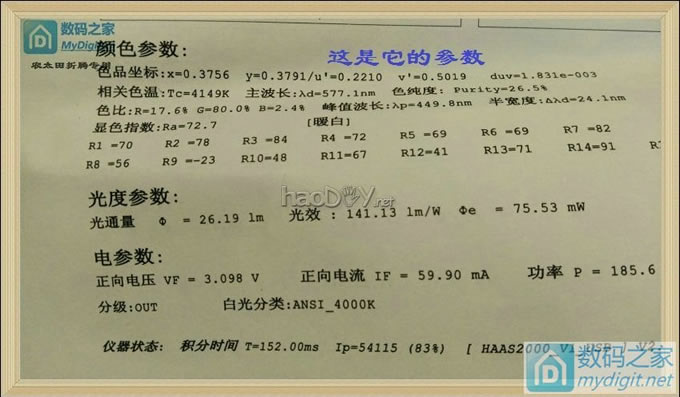 数码之家
MyDigit.net
农太田折腾专用
这是它的参数
颜色参数:
色品坐标:x=0.3756 y=0.3791/u'=0.2210 v'=0.5019 duv=1.831e-003
相关色温:Tc=4149K 主波长:λd=577.1nm 色纯度: Purity=26.5%
色比:R=17.6% G=80.0% B=2.4% 峰值波长:λp=449.8nm 半宽度:Δλd=24.1nm
显色指数:Ra=72.7 [暖白]
R1 =70 R2 =78 R3 =84 R4 =72 R5 =69 R6 =69 R7 =82
R8 =56 R9 =-23 R10=48 R11=67 R12=41 R13=71 R14=91
光度参数:
haoDIY.net
光通量 Φ = 26.19 lm 光效 : 141.13 lm/W Φe = 75.53 mW
电参数:
正向电压 VF = 3.098 V 正向电流 IF = 59.90 mA 功率 P = 185.6
分级:OUT 白光分类:ANSI_4000K
仪器状态: 积分时间 T=152.00ms Ip=54115 (83%) [ HAAS2000_V1_USB / V2.
数码之家
mydigit.net